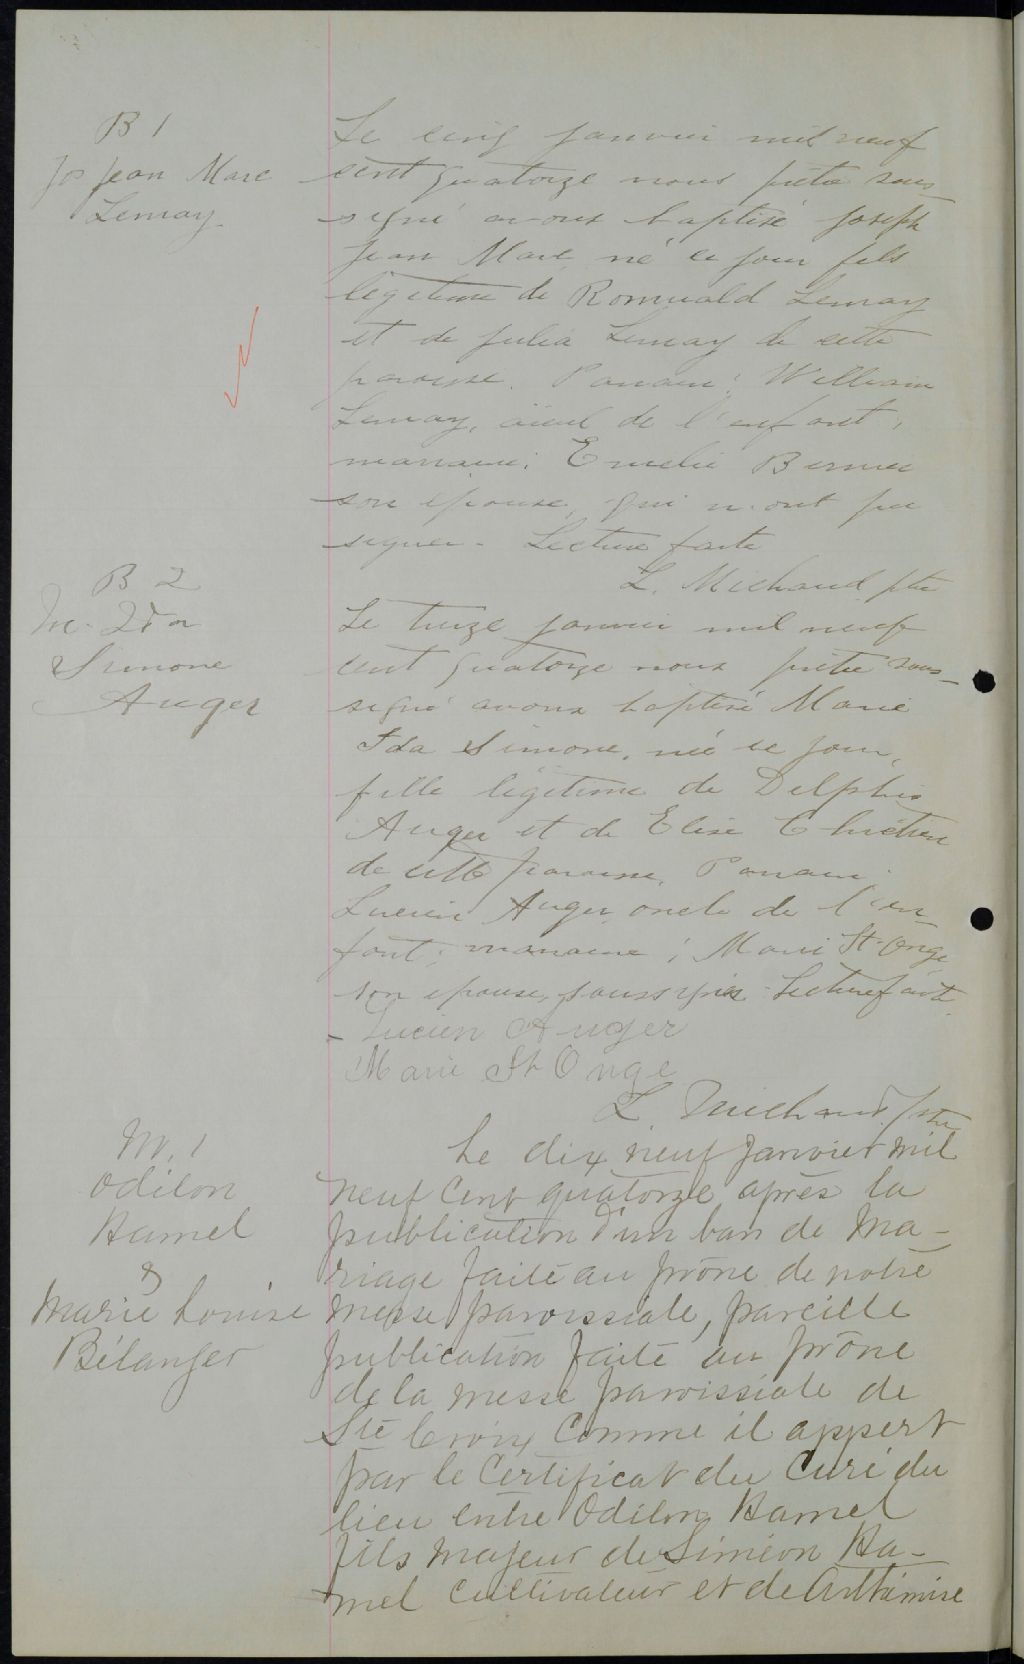 B 1
Jos Jean Marc
Lemay
Le cinq janvier mil neuf
cent quatorze nous prêtre sous
signé avons baptisé Joseph
Jean Marc né ce jour fils
légitime de Romuald Lemay
et de Julia Lemay de cette
paroisse. Parrain: William
Lemay, aïeul de l'enfant,
marraine: Emelie Bernier
son épouse, qui n'ont pu
signer - Lecture faite
L. Michaud ptre
B 2
M. Ida
Simone
Auger
Le treize janvier mil neuf
cent quatorze nous prêtre sous-
signé avons baptisé Marie
Ida Simone, née ce jour,
fille légitime de Delphis
Auger et de Elise Chrétien
de cette paroisse. Parrain:
Lucien Auger oncle de l'en
fant; marraine; Marie St-Onge
son épouse, soussignés - Lecture faite
Lucien Auger
Marie St Onge
L Michaud ptre
M. 1
Odilon
Hamel
&
Marie Louise
Bélanger
Le dix neuf Janvier mil
neuf cent quatorze après la
publication d'un ban de ma-
riage faite au prône de notre
messe paroissiale, pareille
publication faite au prône
de la messe paroissiale de
Ste Croix comme il appert
par le certificat du Curé du
lieu entre Odilon Hamel
fils majeur de Siméon Ha-
mel cultivateur et de Arthémise